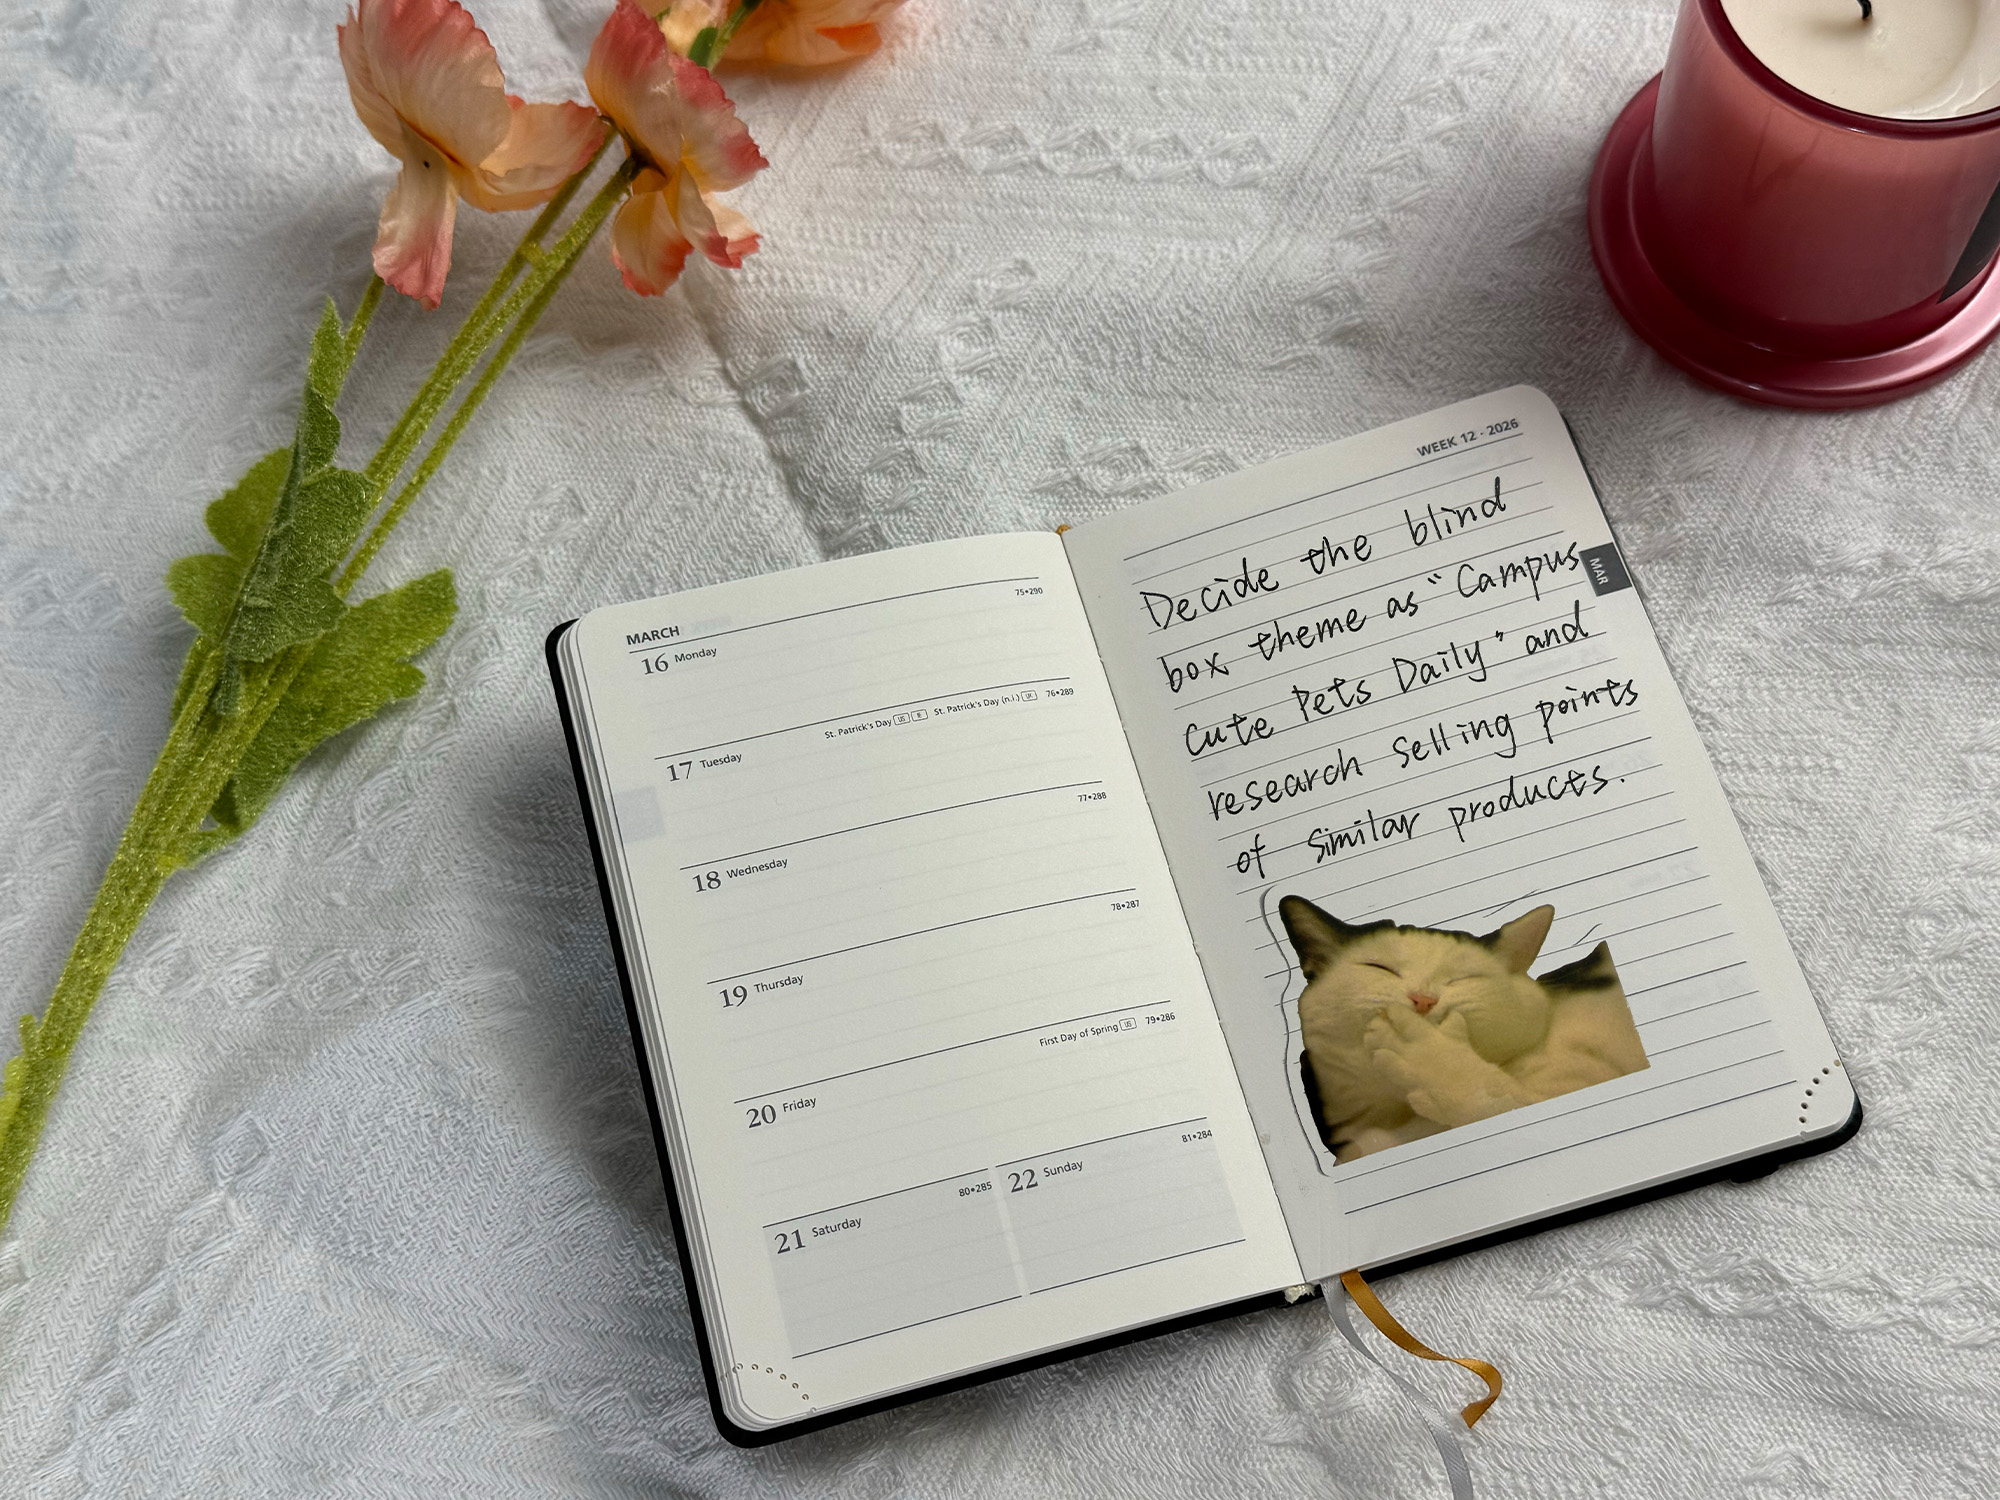 MARCH
75•290
16 Monday
St. Patrick's Day US IE St. Patrick's Day (n.i.) UK 76•289
17 Tuesday
77•288
18 Wednesday
78•287
19 Thursday
First Day of Spring US 79•286
20 Friday
80•285
21 Saturday
81•284
22 Sunday
WEEK 12 · 2026
MAR
Decide the blind
box theme as "Campus
Cute Pets Daily" and
research selling points
of similar products.